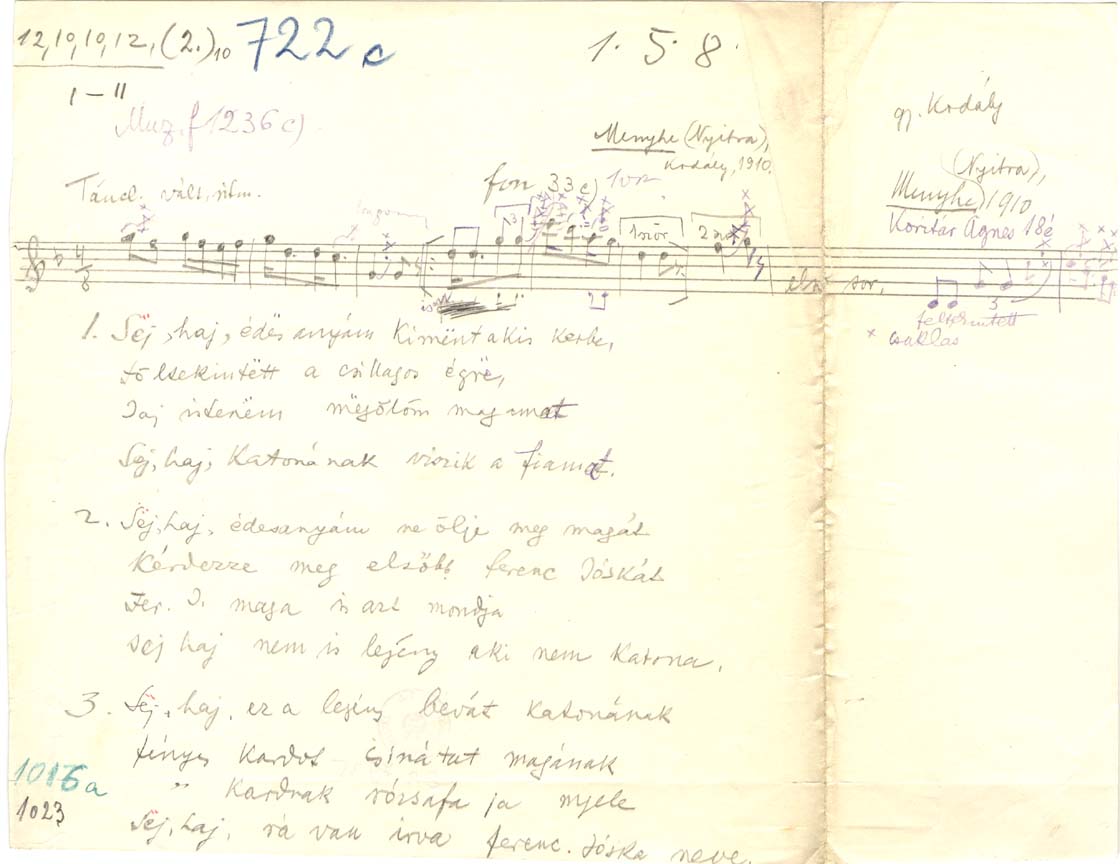 12,10,10,12, (2.)10 722 c 1. 5. 8.
I – II
Muz. f 1236 c)
gy. Kodály
Menyhe (Nyitra),
Kodály, 1910.
(Nyitra),
Menyhe, 1910
Koritár Ágnes 18é
Táncl. vált. ritm.
fon 33 c)
3
1ször
első sor.
3
x csuklás
1. Sëj, haj, édës anyám kimënt a kis kerbe,
föltekintëtt a csillagos égre,
Jaj istenëm mëgölöm magamat
Sëj, haj, Katonának viszik a fiamat.
2. Sëj, haj, édesanyám ne ölje meg magát
Kérdezze meg elsőbb ferenc Jóskát
Fer. J. maga is azt mondja
sej haj nem is legény aki nem Katona.
3. Sëj, haj, ez a legény bevát katonának
fényes kardot csinátat magának
" Kardnak rózsafa ja nyele
Sëj, haj, rá van irva ferenc. Jóska neve.
1016a
1023